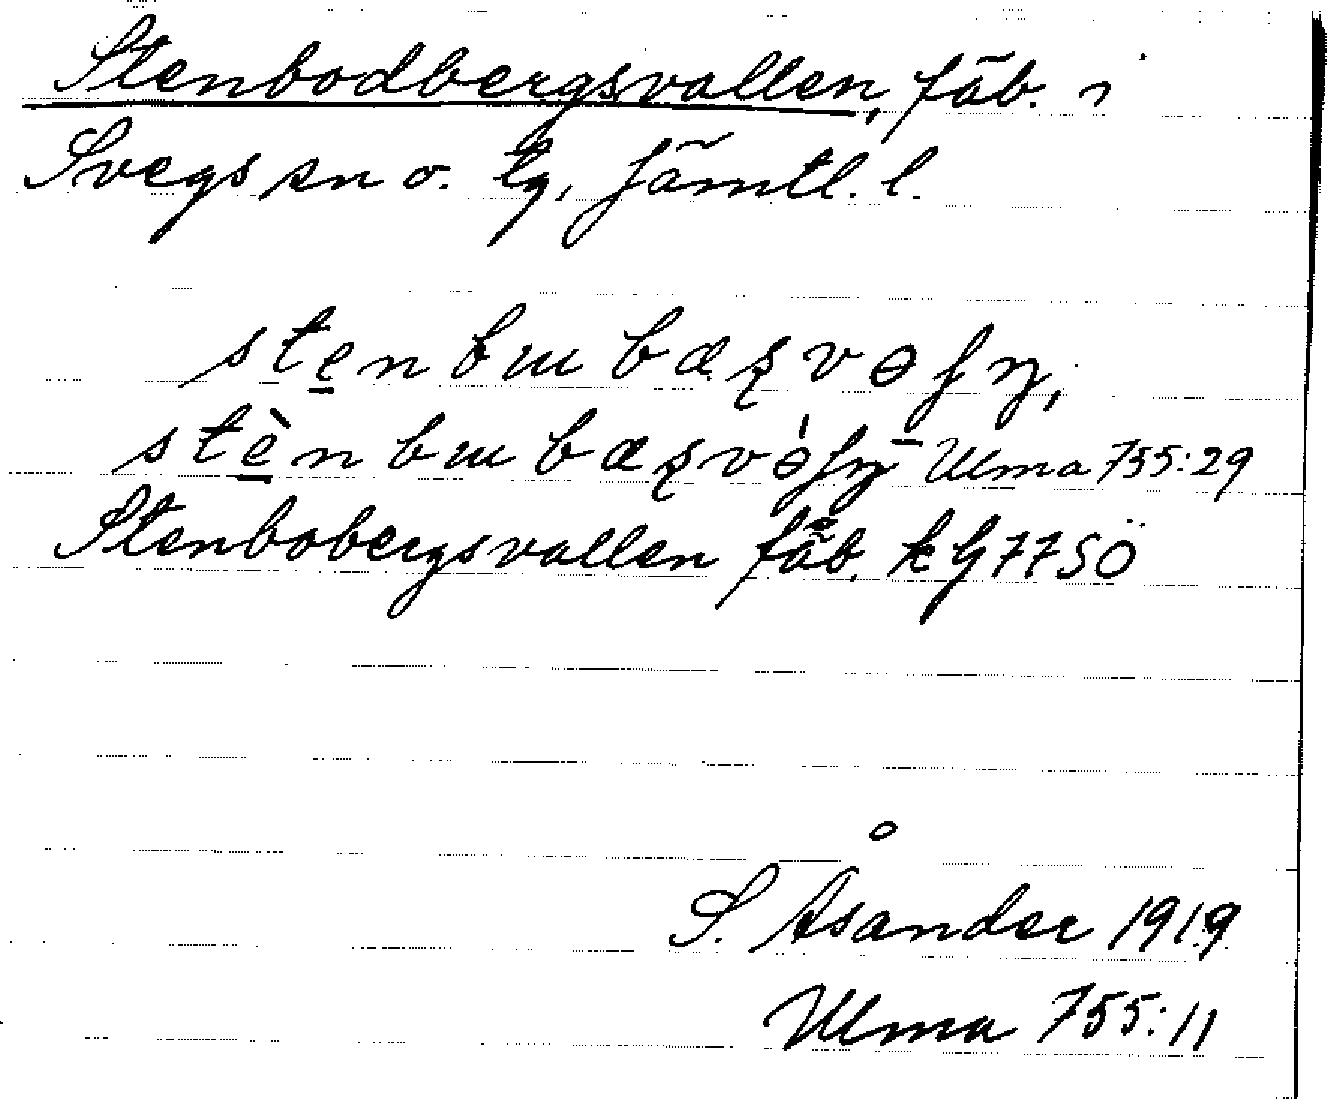 Stenbodbergsvallen, fäb. i
Svegs sn o. tg, Jämtl. l.
Ulma 755:29
Stenbobergsvallen fäb. kg 77 SÖ
S. Åsander 1919
Ulma 755:11